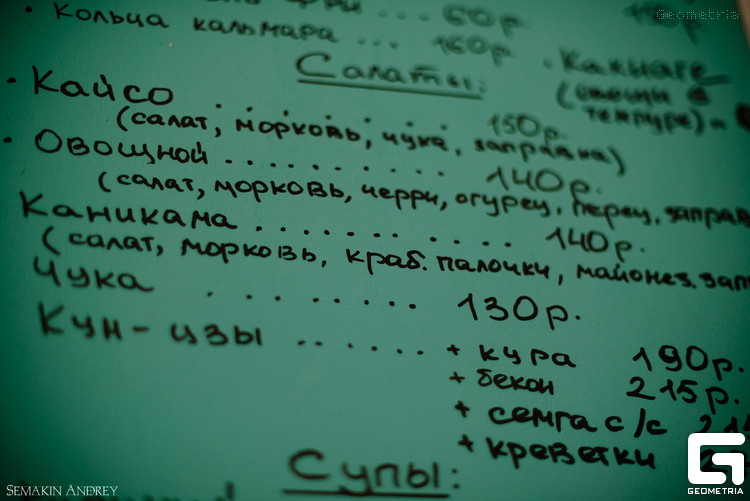 60р.
Geometria
• Кольца кальмара ... 160р
Салаты:
Какиаге
(овощи в
темпуре)
• Кайсо ........ 150р.
(салат, морковь, чука, заправка)
• Овощной .......... 140р.
(салат, морковь, черри, огурец, перец, заправ
Каникама .......... 140р.
(салат, морковь, краб. палочки, майонез, зап
Чука ........ 130р.
Кун-цзы ...... + кура 190р.
+ бекон 215р.
+ семга с/с
+ креветки
Супы:
SEMAKIN ANDREY
GEOMETRIA